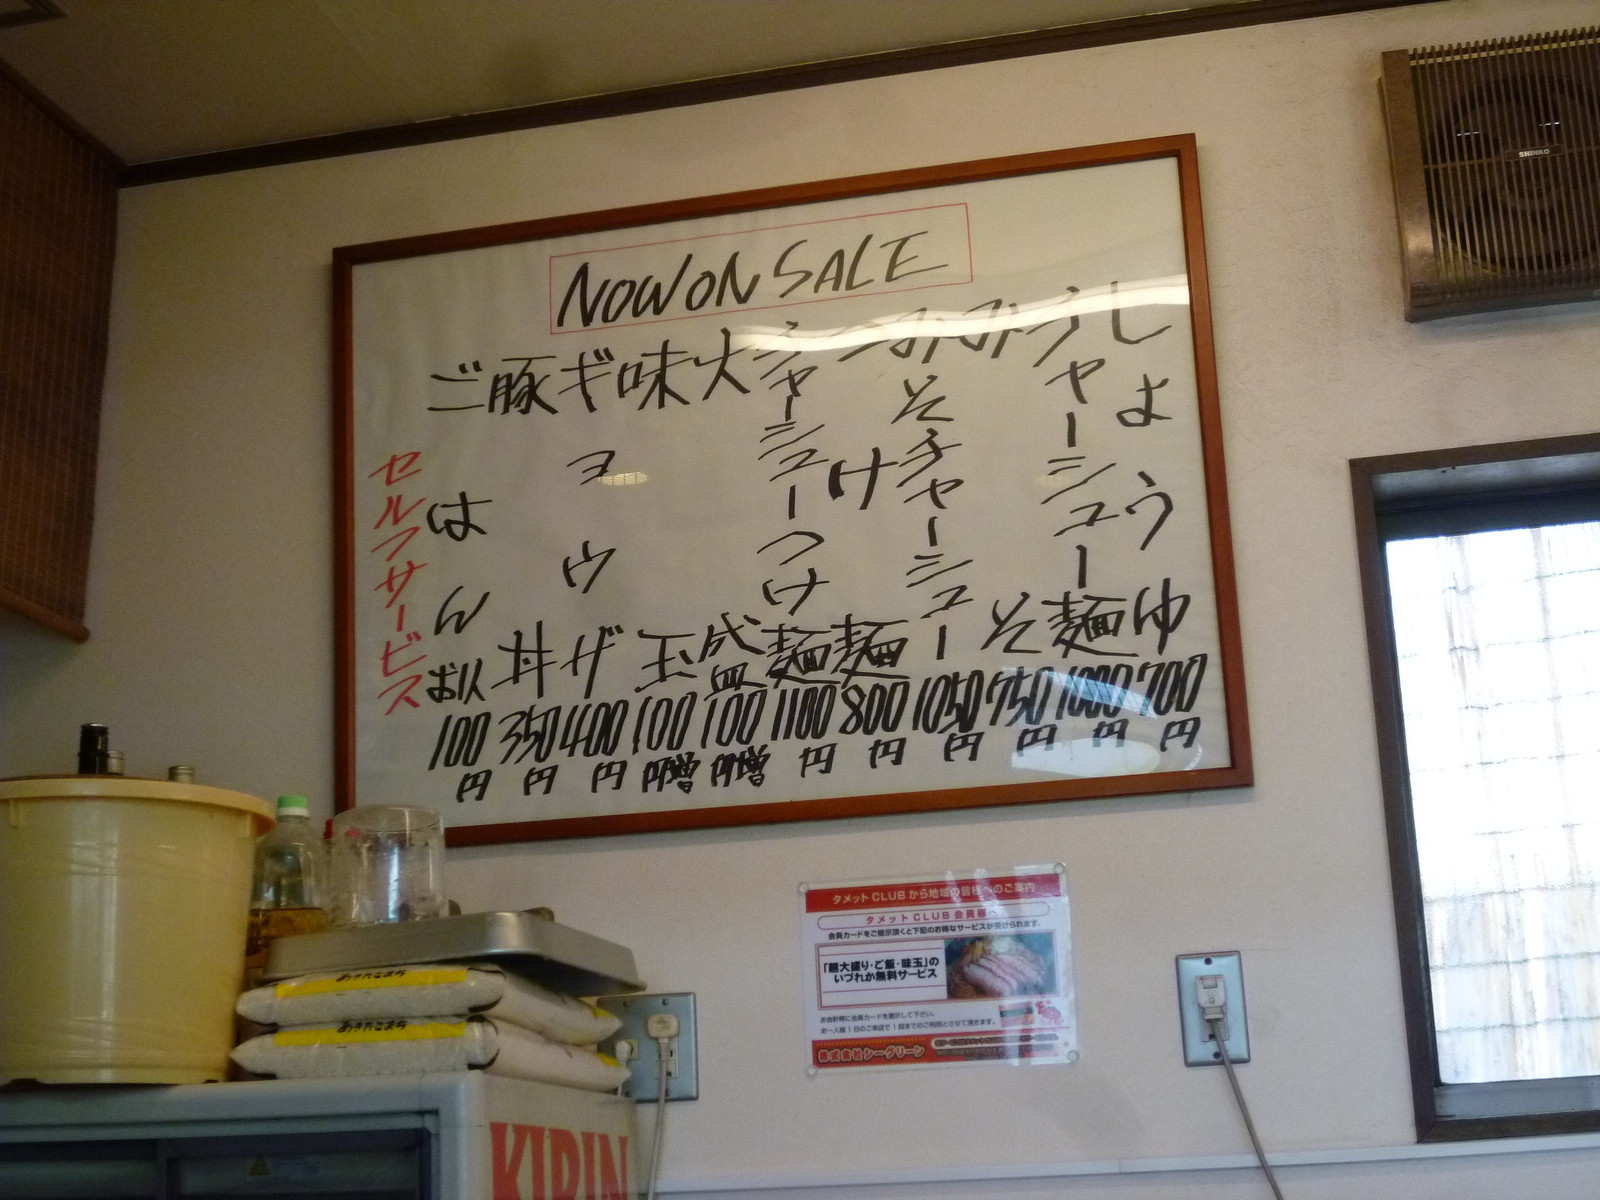 NOW ON SALE
しようゆ 700円
チャーシュー麺 1000円
みそ 750円
みそチャーシュー 1050円
つけ麺 800円
チャーシューつけ麺 1100円
大盛 100円増
味玉 100円増
ギョウザ 400円
豚丼 350円
ごはん お1人 100円
セルフサービス
SHINKO
タメットCLUBから地域の皆様へのご案内
タメットCLUB会員様へ
会員カードをご提示頂くと下記のお得なサービスが受けられます。
「麺大盛り・ご飯・味玉」の
いづれか無料サービス
お会計時に会員カードを提示して下さい。
お一人様1日のご来店で1回までのご利用とさせて頂きます。
株式会社シーグリーン
あきたこまち
あきたこまち
KIRIN